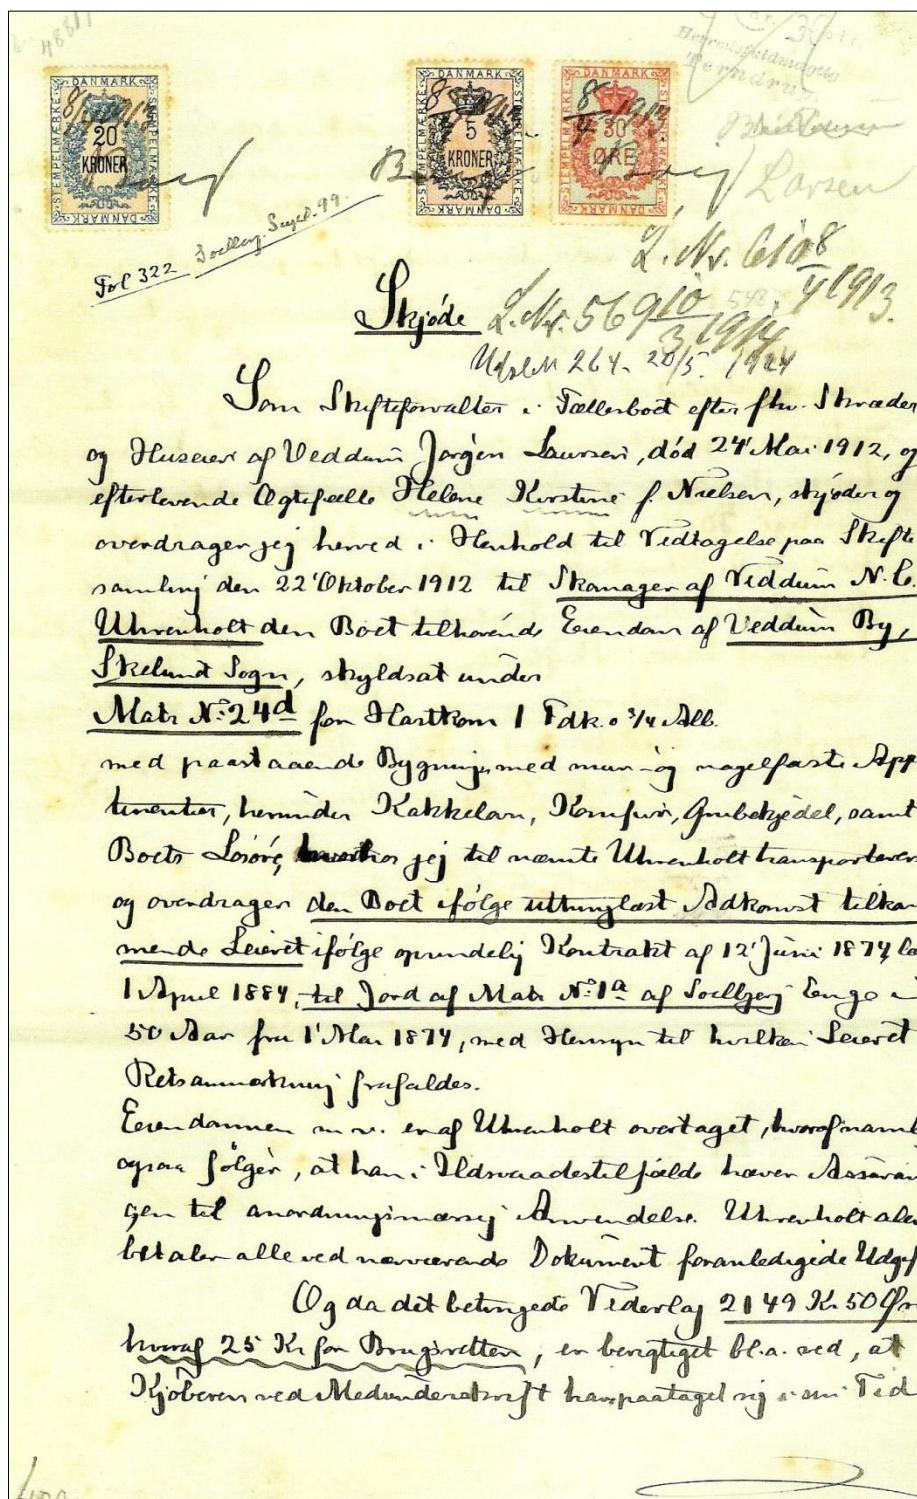 48811
DANMARK
STEMPELMÆRKE
8/4 1913
20
KRONER
STEMPELMÆRKE
DANMARK
DANMARK
STEMPELMÆRKE
8/4 1913
5
KRONER
STEMPELMÆRKE
DANMARK
DANMARK
STEMPELMÆRKE
8/4 1913
30
ØRE
STEMPELMÆRKE
DANMARK
Terndrup
Larsen
Fol 322
L. Nr. 610 8/4 1913.
Skjøde L. Nr. 569 10/3 1914
264 - 20/5 1924
Som Skifteforvalter i Fællesboet efter fhv. Skræder
og Huseier af Veddum Jørgen Laursen, død 24' Mai 1912, og
efterlevende Ægtefælle Helene Kirstine f. Nielsen, skjøder og
overdrager jeg herved i Henhold til Vedtagelse paa Skifte
samling den 22' Oktober 1912 til Skomager af Veddum N. C.
Uhrenholt den Boet tilhørende Eiendom af Veddum By,
Skelund Sogn, skyldsat under
Matr No. 24d for Hartkorn 1 Fdk. 0 3/4 Alb.
med paastaaende Bygning, med mur- og nagelfaste App
tinentier, herunder Kakkelovn, Komfur, Grubekjedel, samt
Boets Løsøre, jeg til nævnte Uhrenholt transporterer
og overdrager den Boet ifølge uttinglæst Adkomst tilkom
mende Leieret ifølge oprindelig Kontrakt af 12' Juni 1874,
1 April 1884, til Jord af Matr No. 1a af Soelbjerg Enge
50 Aar fra 1' Mai 1874, med Hensyn til hvilken Leieret
Retsanmærkning frafaldes.
Eiendommen m.v. er af Uhrenholt overtaget, hvoraf navnl
ogsaa følger, at han i Ildsvaadestilfælde hæver Assuran
cen til anordningsmæssig Anvendelse. Uhrenholt alene
betaler alle ved nærværende Dokument foranledigede Udgif
Og da det betingede Vederlag 2149 Kr 50 Øre
hvoraf 25 Kr for Brugsretten, er berigtiget bl.a. ved, at
Kjøberen ved Medunderskrift har paataget sig i sin Tid